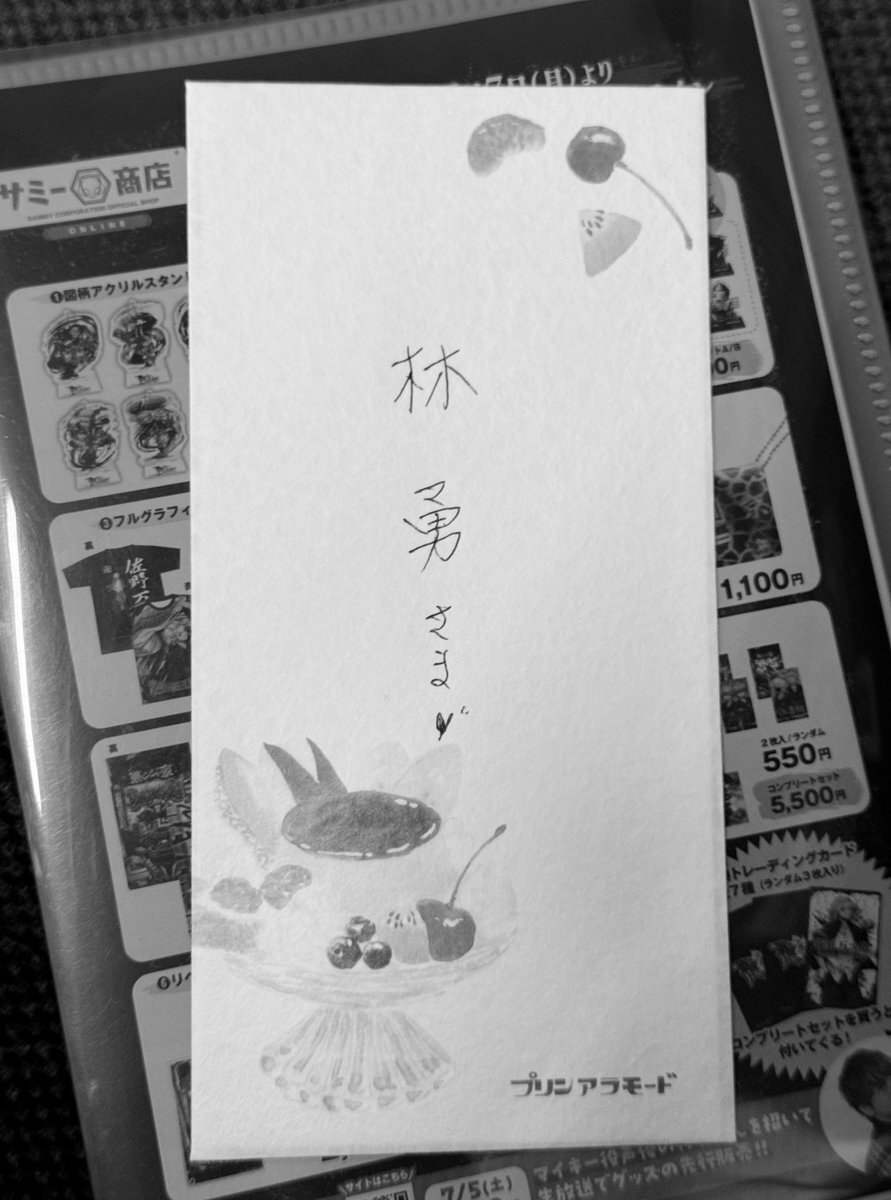 7日(月)より
サミー商店
SAMMY CORPORATION OFFICIAL SHOP
ONLINE
①図柄アクリルスタン
③フルグラフィ
裏
佐野万
裏
林
勇
さま
プリンアラモード
トA/B
0円
1,100円
2枚入/ランダム
550円
コンプリートセット
5,500円
トレーディングカード
7種(ランダム3枚入り)
コンプリートセットを買うと
付いてくる!
を招いて
生放送でグッズの先行販売!!
サイトはこちら
7/5(土)